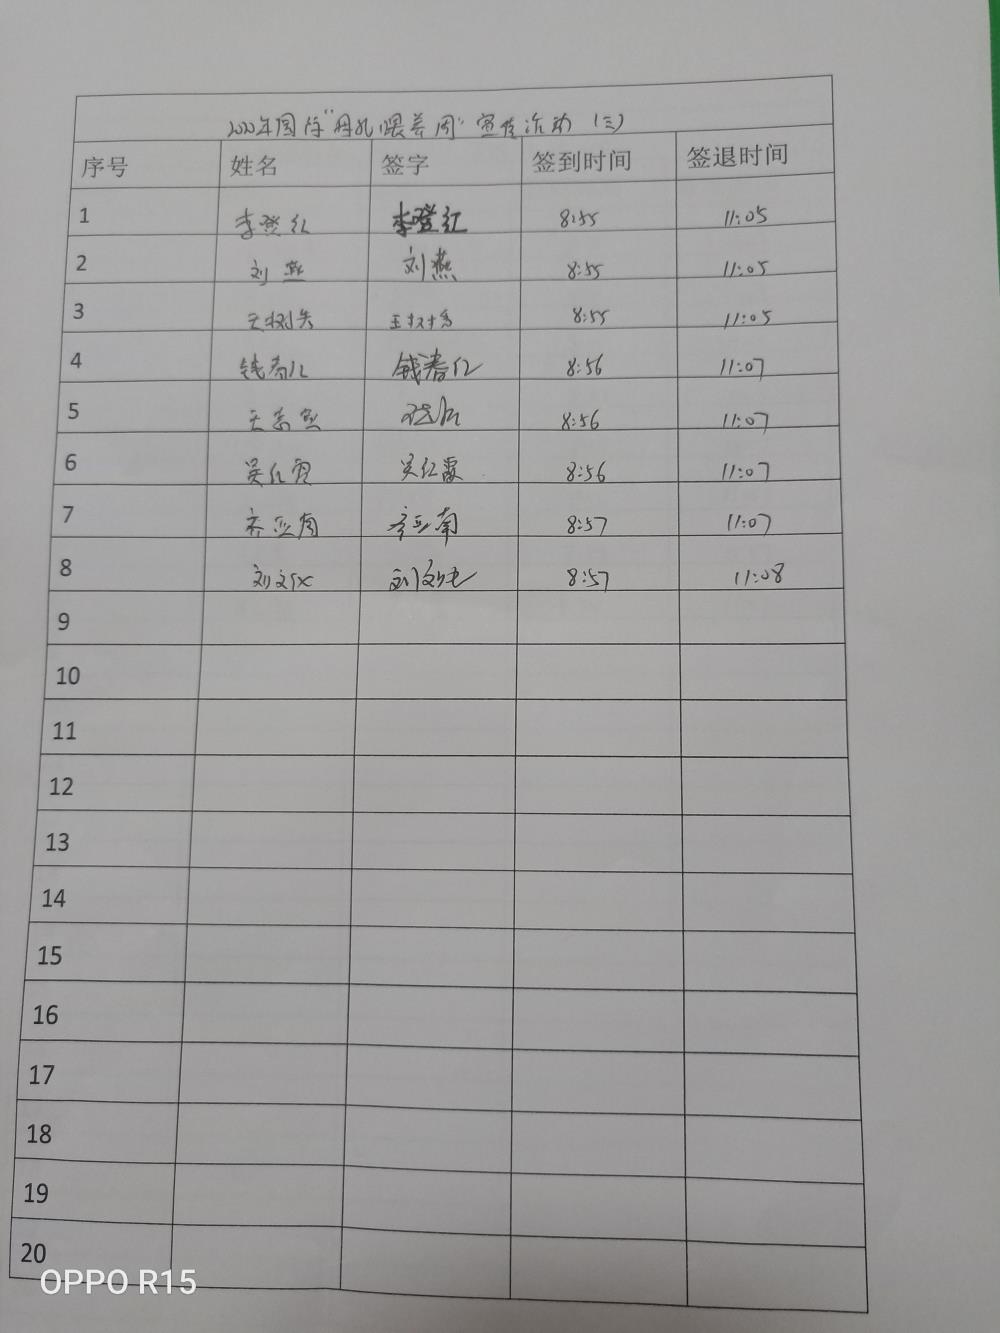 2020年国际"母乳喂养周"宣传活动（三）
序号 姓名 签字 签到时间 签退时间
1 李登红 李登红 8:55 11:05
2 刘燕 刘燕 8:55 11:05
3 8:55 11:05
4 钱春红 钱春红 8:56 11:07
5 8:56 11:07
6 吴红霞 吴红霞 8:56 11:07
7 8:57 11:07
8 8:57 11:08
9
10
11
12
13
14
15
16
17
18
19
20
OPPO R15